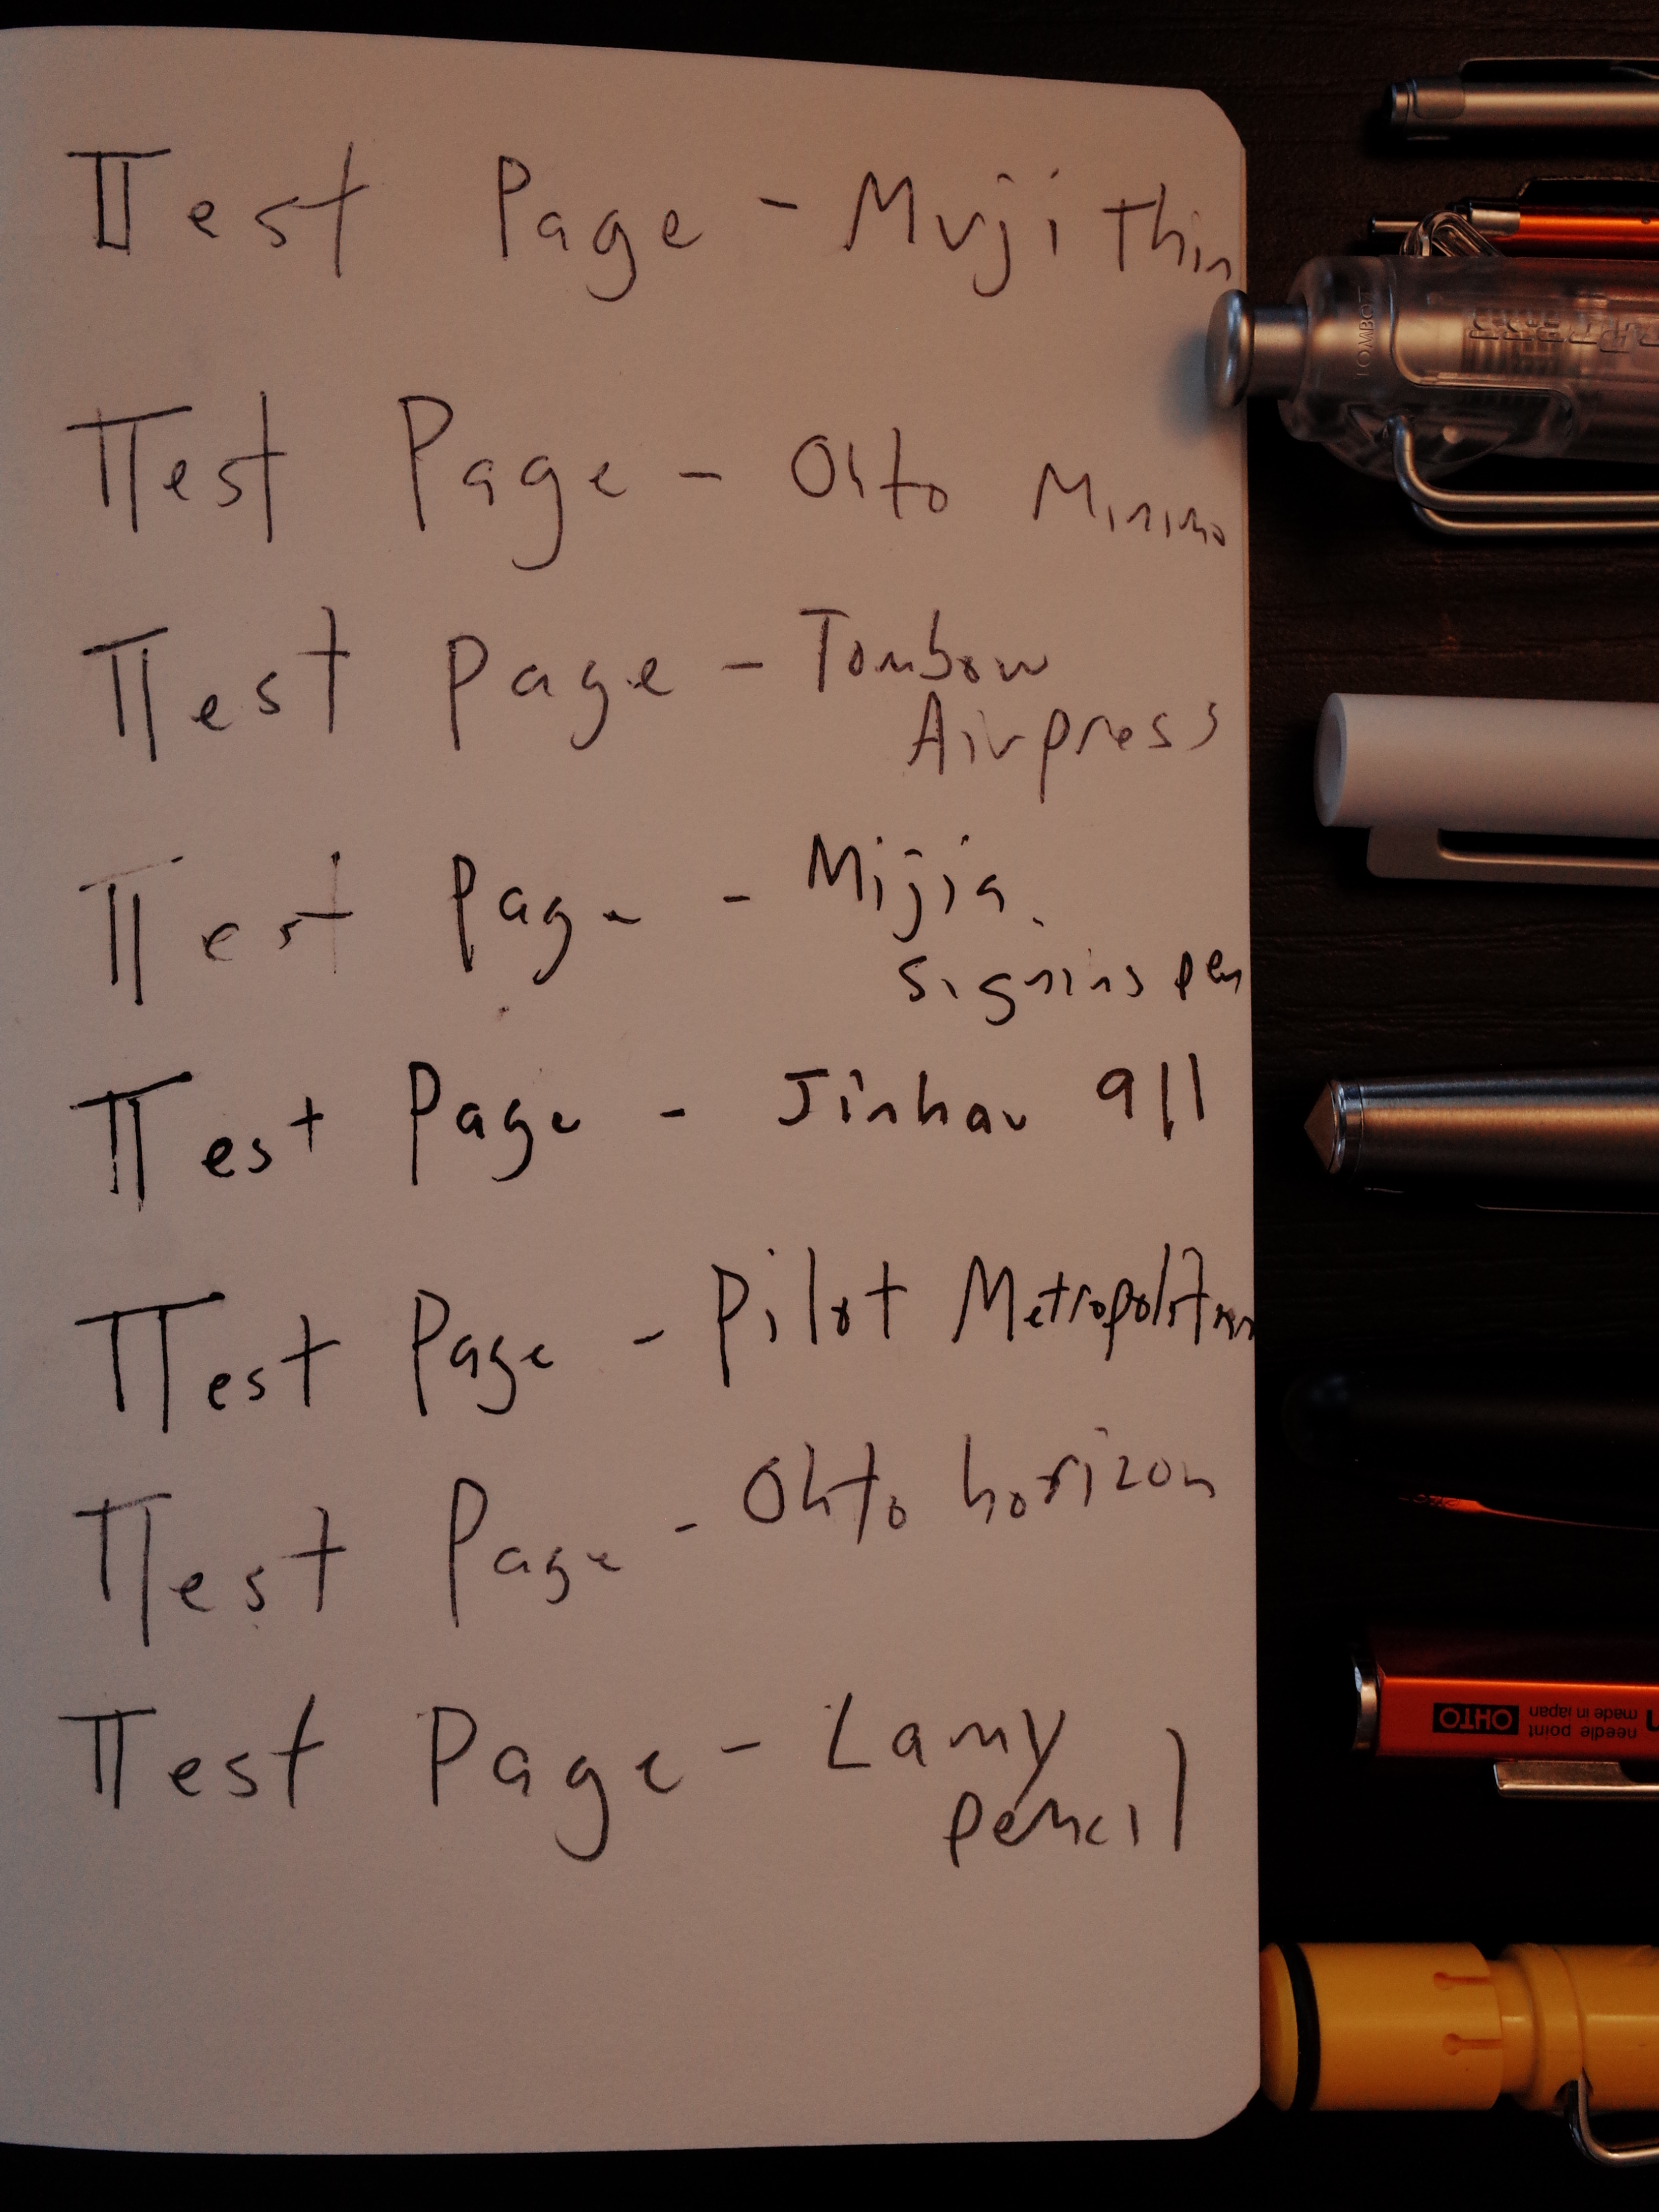 Test Page - Muji thin
Test Page - Ohto Minimo
Test Page - Tombow
Airpress
Test Page - Mijia
signing pen
Test Page - Jinhao 911
Test Page - Pilot Metropolitan
Test Page - Ohto horizon
Test Page - Lamy
pencil
TOMBOW
needle point
made in japan
OHTO